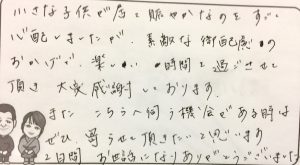 小さな子供が居て賑やかなのをすごく
心配しましたが、素敵な御配慮の
おかげで、楽しい時間を過ごさせて
頂き大変感謝しております。
また こちらへ伺う機会がある時は
ぜひ寄らせて頂きたいと思います
2日間 お世話になりありがとうございました